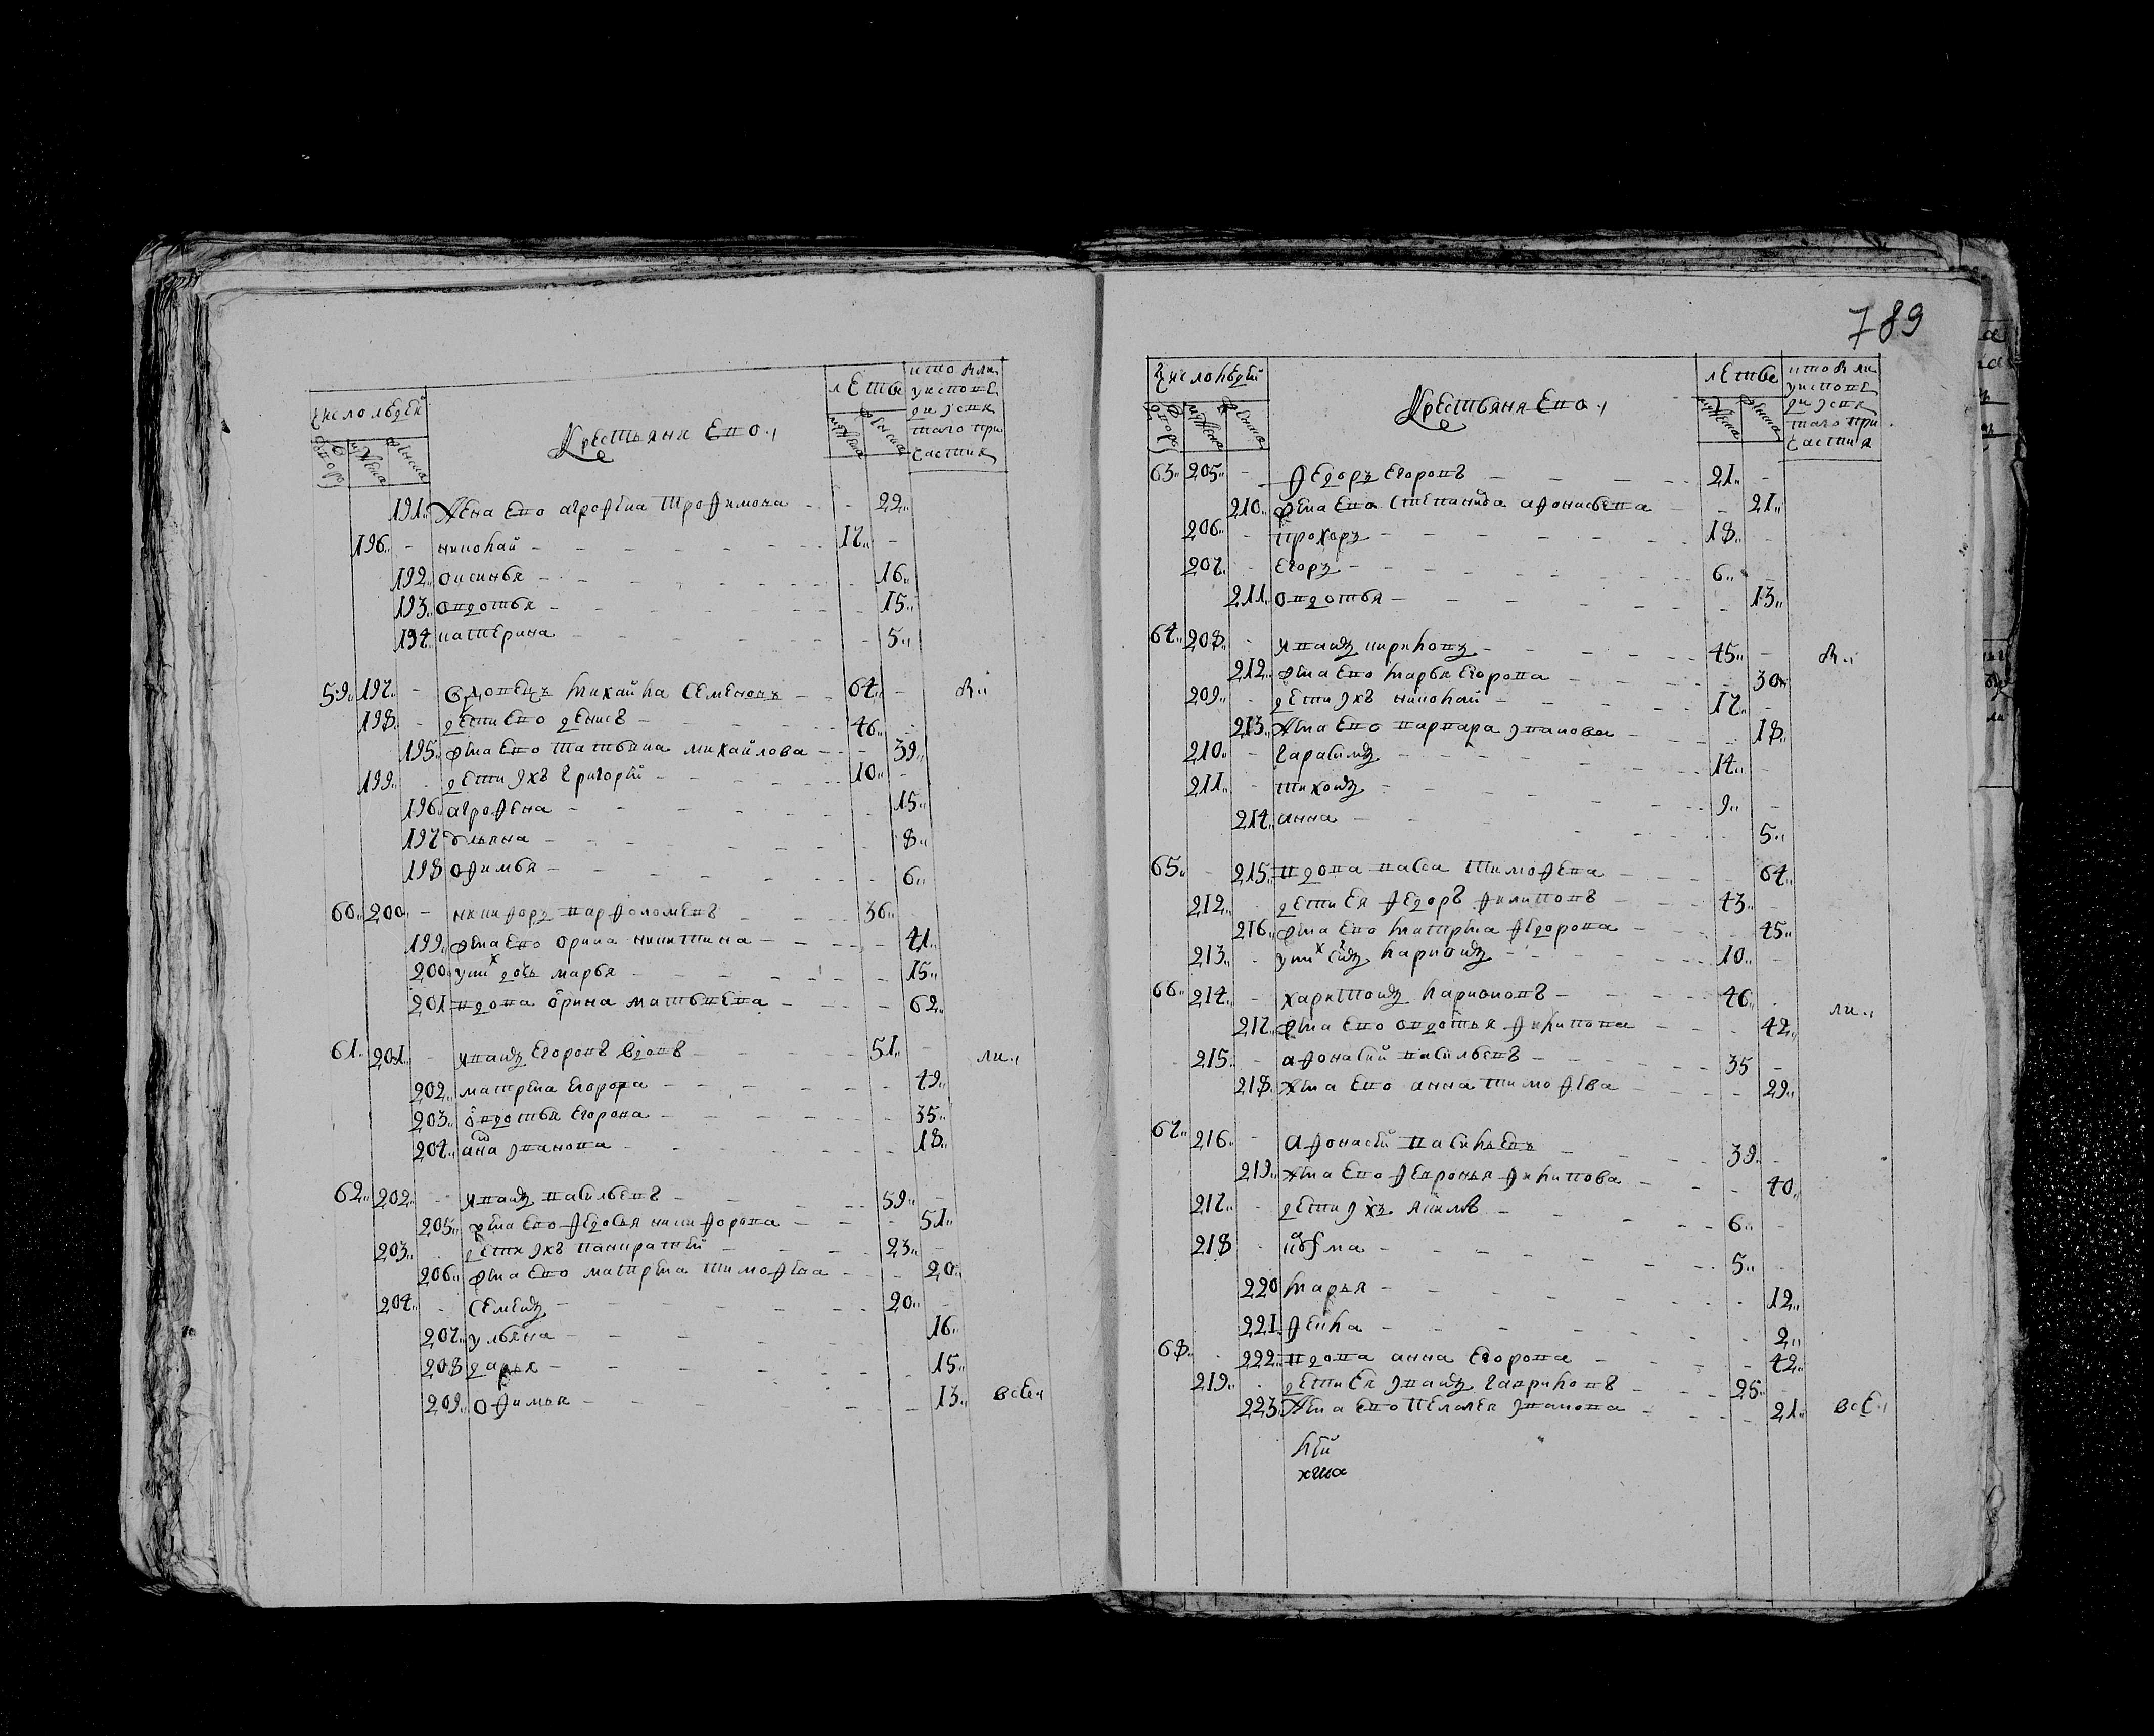 число людей
дворо
мужеска
женска
Крестьяня Ево
летъ
мужеска
женска
кто были
у исповѣ
ди и свя
таго при
частия
191 жена ево аграфена трофимова 22
196 николай 17
192 оксинья 16
193 овдотья 15
194 катерина 5
59 197 вдовецъ михайла семеновъ 64 б
198 дети ево денисъ 46
195 жена ево татьяна михайлова 39
199 дети ихъ григорѣй 10
196 аграфена 15
197 ульяна 8
198 офимья 6
60 200 никифоръ варфоломеевъ 36
199 жена ево орина никитина 41
200 у них дочь марья 15
201 вдова орина матвѣева 62
61 201 иванъ егоровъ вдовъ 51 ли
202 матрена егорова 49
203 овдотья егорова 35
204 анна иванова 18
62 202 иванъ васильевъ 59
205 жена ево федосья никифорова 51
203 дети ихъ панкратѣй 23
206 жена ево матрена тимофеева 20
204 семенъ 20
207 ульяна 16
208 дарья 15
209 офимья 13 все
789
число людей
дворо
мужеска
женска
Крестьяня Ево
летъ
мужеска
женска
кто были
у исповѣ
ди и свя
таго при
частия
63 205 федоръ егоровъ 21
210 жена ево степанида афонасьева 21
206 прохоръ 18
207 егоръ 6
211 овдотья 13
64 208 иванъ кириловъ 45 б
212 жена ево марья егорова 30
209 дети ихъ николай 17
213 жена ево варвара иванова 18
210 гарасимъ 14
211 тихонъ 9
214 анна 5
65 215 вдова васса тимофеева 64
212 дети ея федоръ филиповъ 43
216 жена ево матрена федорова 45
213 у них сынъ ларионъ 10
66 214 харитонъ ларионовъ 46 ли
217 жена ево овдотья филипова 42
215 афонасѣй васильевъ 35
218 жена ево анна тимофеева 29
67 216 афонасѣй васильевъ 39
219 жена ево февронья филипова 40
217 дети ихъ якимъ 6
218 кузма 5
220 марья 12
221 фекла 2
68 222 вдова анна егорова 42
219 дети ея иванъ гавриловъ 25
223 жена ево пелагея иванова 21 все